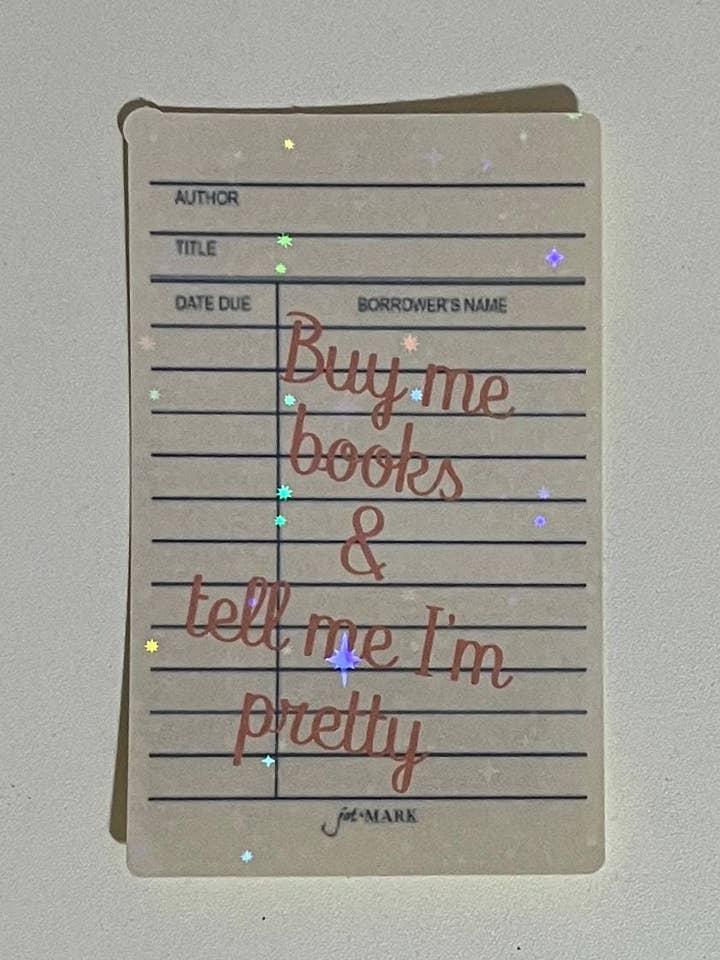 AUTHOR
TITLE
DATE DUE BORROWER'S NAME
Buy me
books
&
tell me I'm
pretty
jot•MARK